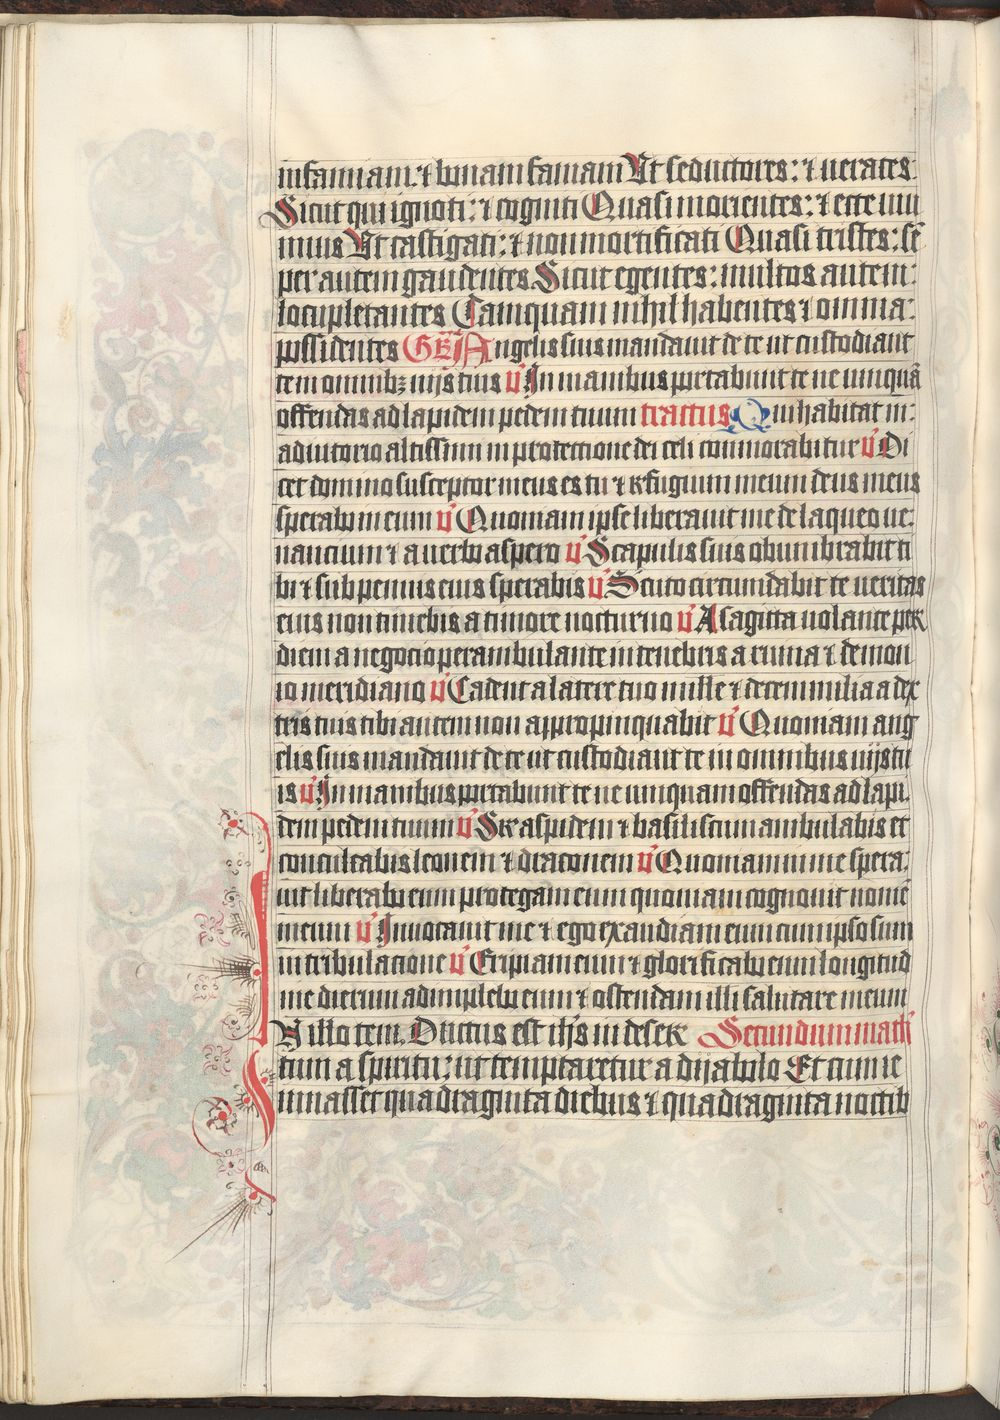 infamiam. ⁊ bonam famam Ut seductores: ⁊ ueraces.
Sicut qui ignoti: ⁊ cogniti Quasi morientes: ⁊ ecce uiui
mus Ut castigati: ⁊ non mortificati Quasi tristes: sē
per autem gaudentes. Sicut egentes: multos autem:
locupletantes Tamquam nihil habentes ⁊ omnia:
possidentes GR̄A Angelis suis mandauit de te ut custodiant
te in omnibꝫ uijs tuis v̄ In manibus portabunt te ne umquā
offendas ad lapidem pedem tuum tractus Qui habitat in:
adiutorio altissimi in protectione dei celi commorabitur v̄ Di
cet domino susceptor meus es tu ⁊ refugium meum deus meus
sperabo in eum v̄ Quoniam ipse liberauit me de laqueo ue:
nantium ⁊ a uerbo aspero v̄ Scapulis suis obumbrabit ti
bi ⁊ sub pennis eius sperabis v̄ Scuto circumdabit te ueritas
eius non timebis a timore nocturno v̄ A sagitta uolante per
diem a negocio perambulante in tenebris a ruina ⁊ demon
io meridiano v̄ Cadent a latere tuo mille ⁊ decem milia a dex
tris tuis tibi autem non appropinquabit v̄ Quoniam ang
elis suis mandauit de te ut custodiant te in omnibus uijs tu
is v̄ In manibus portabunt te ne umquam offendas ad lapi
dem pedem tuum v̄ Sr aspidem ⁊ basiliscum ambulabis et
conculcabis leonem ⁊ draconem v̄ Quoniam in me spera:
uit liberabo eum protegam eum quoniam cognouit nomē
meum v̄ Inuocauit me ⁊ ego exaudiam eum cum ipso sum
in tribulacione v̄ Eripiam eum ⁊ glorificabo eum longitud
ine dierum adimplebo eum ⁊ ostendam illi salutare meum
N illo tem. Ductus est ih̄s in deser Secundum math
tum a spiritu: ut temptaretur a dijabolo Et cum ie
iunasset quadraginta diebus ⁊ quadraginta noctib